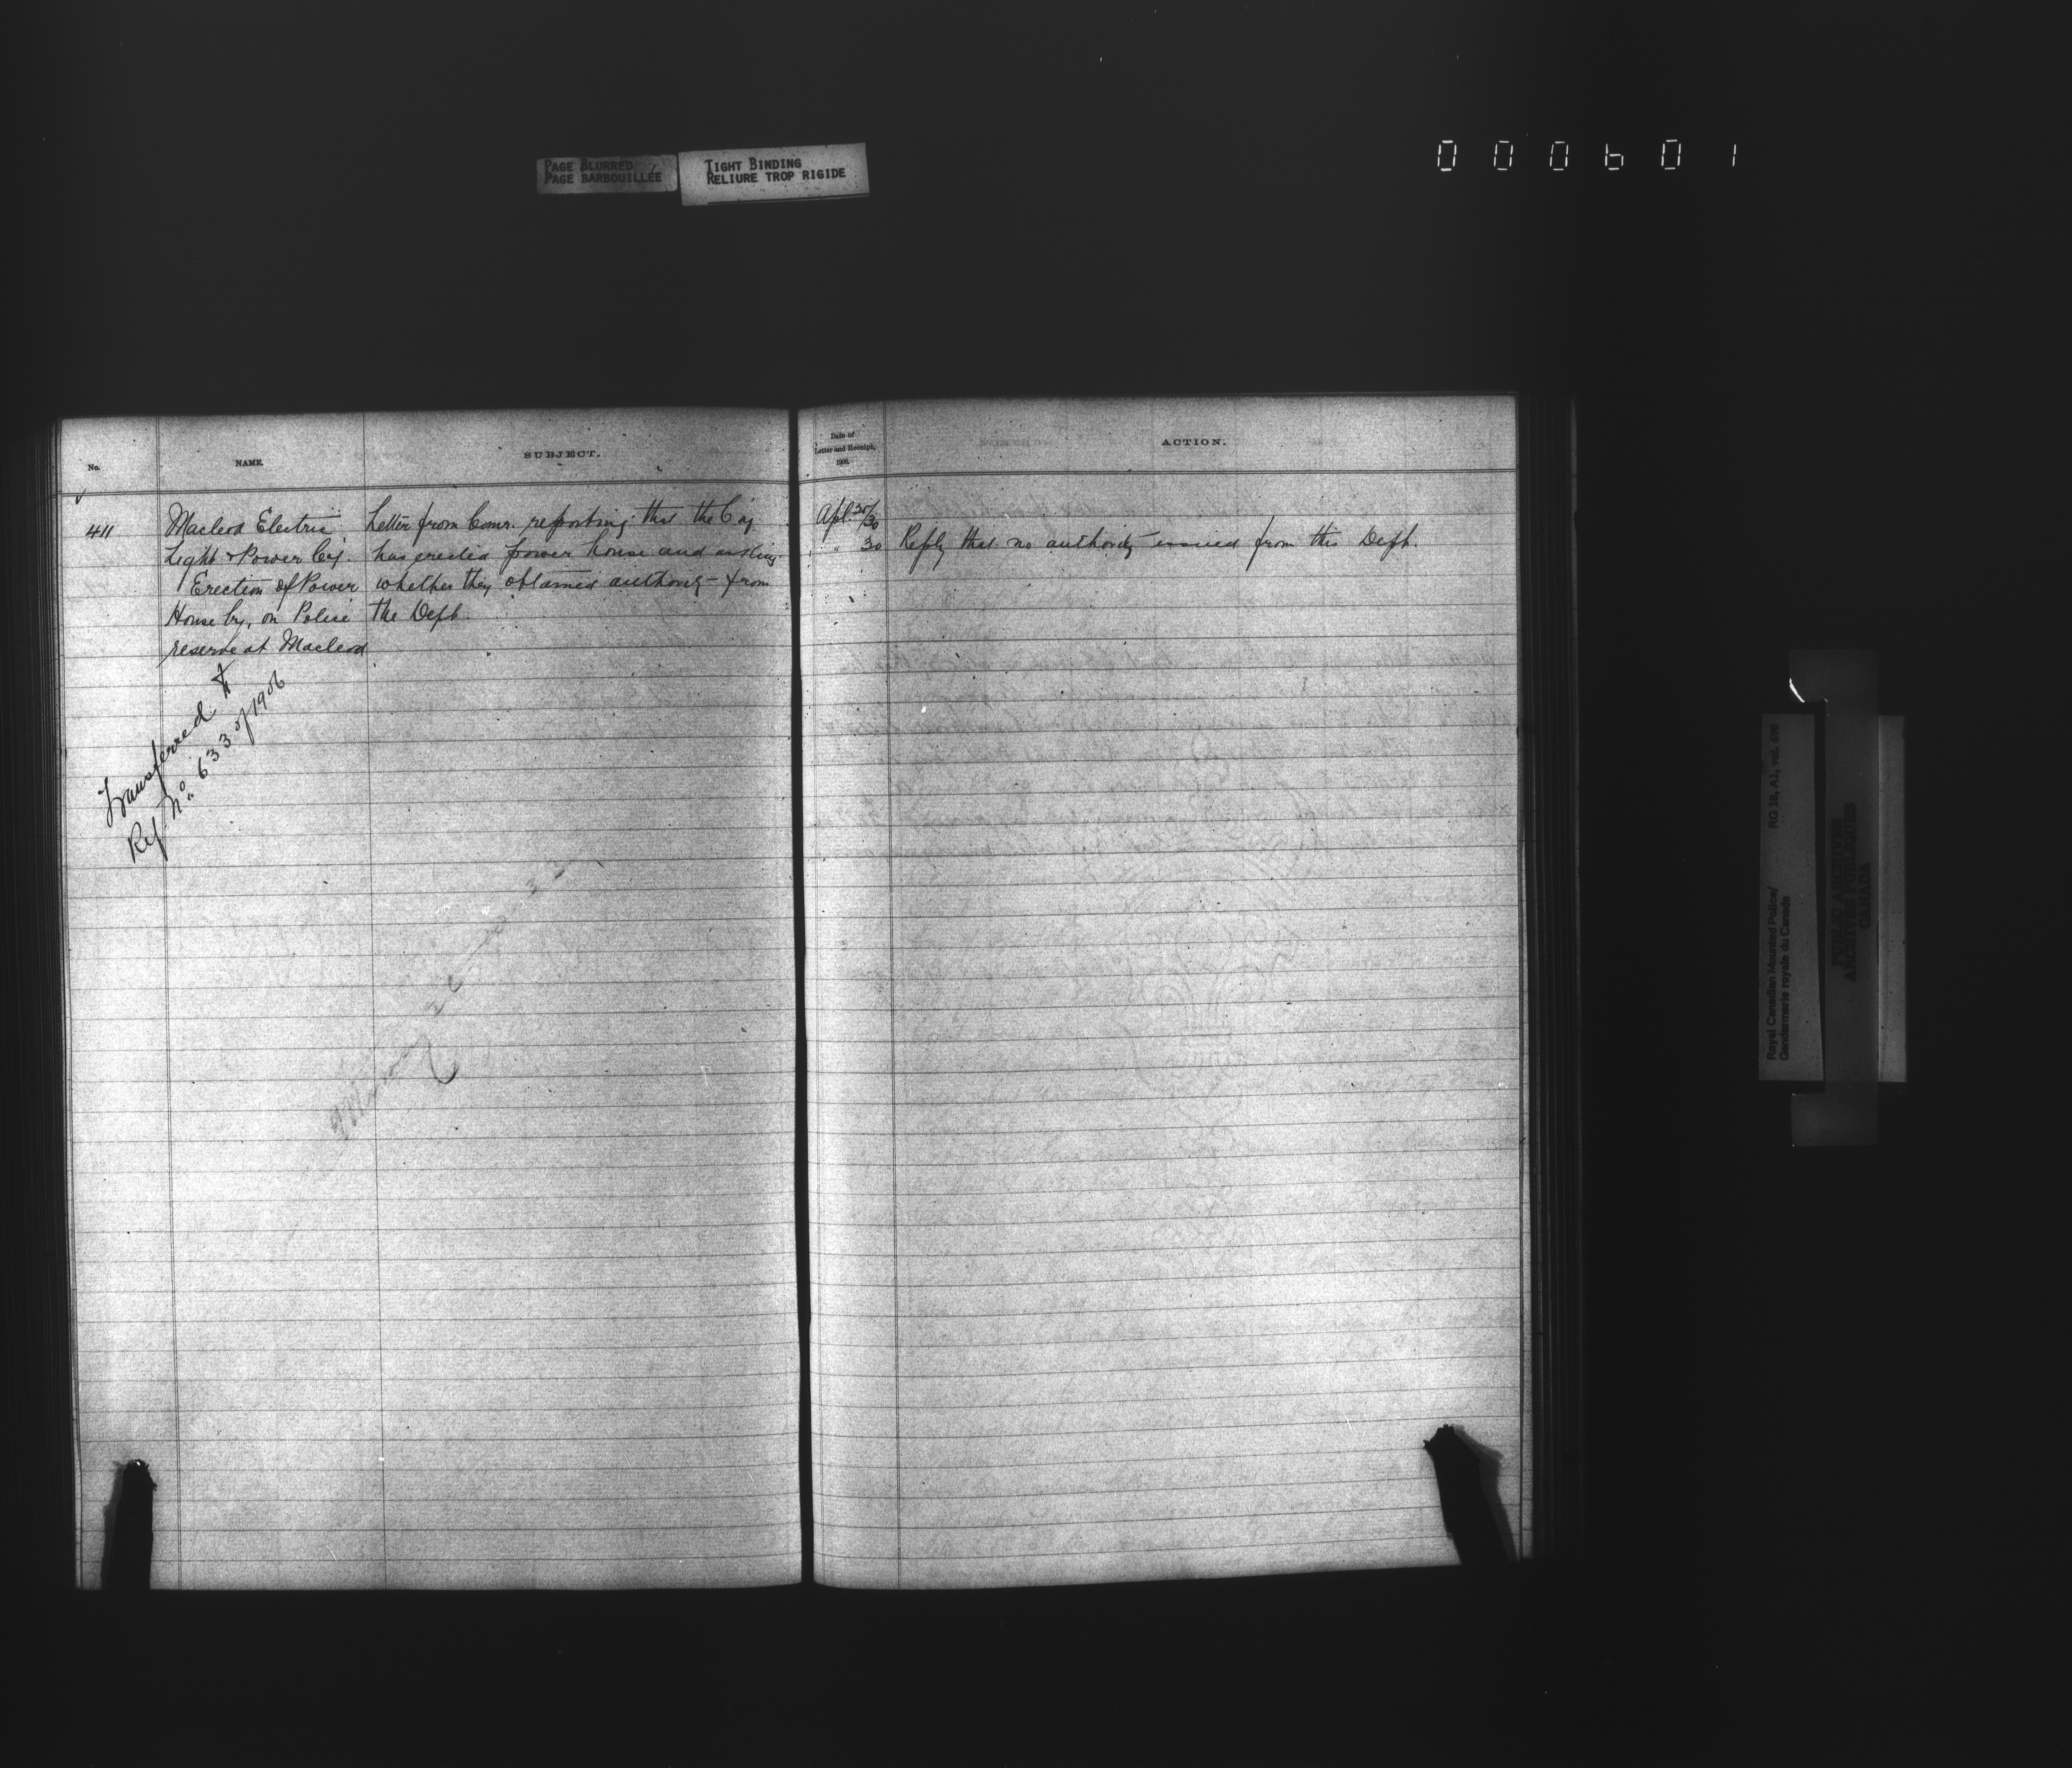 PAGE BLURRED
PAGE BARBOUILLÉE
TIGHT BINDING
RELIURE TROP RIGIDE
000601
No.
NAME.
SUBJECT.
Date of
Letter and Receipt,
1906.
ACTION.
411
Macleod Electric
Light & Power Coy.
Erection of Power
House by, on Police
reserve at Macleod
Letter from Comr. reporting that the Coy
has erected power house and asking
whether they obtained authority from
the Dept.
Transferred to
Ref. No. 633 of 1906
Apl. 30
" 30 Reply that no authority issued from this Dept.
Royal Canadian Mounted Police/
Gendarmerie royale du Canada
RG 18, A1, vol.
PUBLIC ARCHIVES
ARCHIVES PUBLIQUES
CANADA